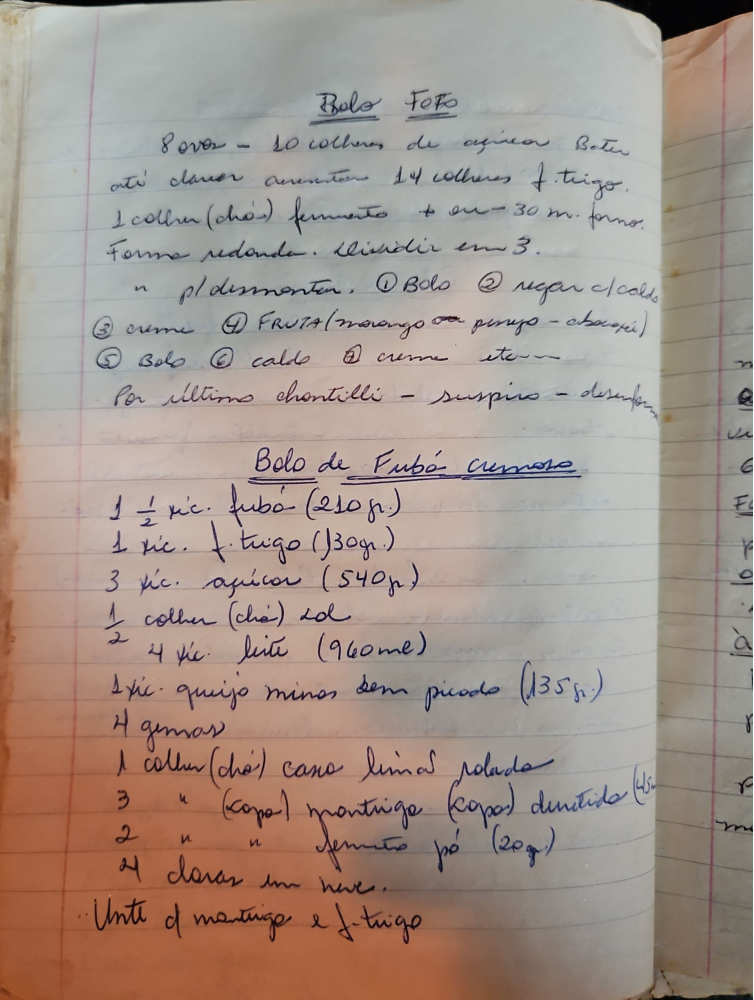 Bolo FoFo
8 ovos - 10 colheres de açúcar Bater
até clarear acrescentar 14 colheres f. trigo.
1 colher (chá) fermento + ou - 30 m. forno.
Forma redonda. Dividir em 3.
" p/desmontar. ① Bolo ② regar c/caldo
③ creme ④ FRUTA (morango ou pessego - abacaxi)
⑤ Bolo ⑥ caldo ⑦ creme etc---
Por último chantilli - suspiro - desenforma
Bolo de Fubá cremoso
1 1/2 xic. fubá (210 gr.)
1 xic. f. trigo (130gr.)
3 xic. açúcar (540gr)
1/2 colher (chá) sal
4 xic. leite (960ml)
1 xic. queijo minas bem picado (135 gr.)
4 gemas
1 colher (chá) casca limão ralada
3 " (sopa) manteiga (sopa) derretida (45
2 " " fermento pó (20gr)
4 claras em neve.
Unte c/ manteiga e f. trigo